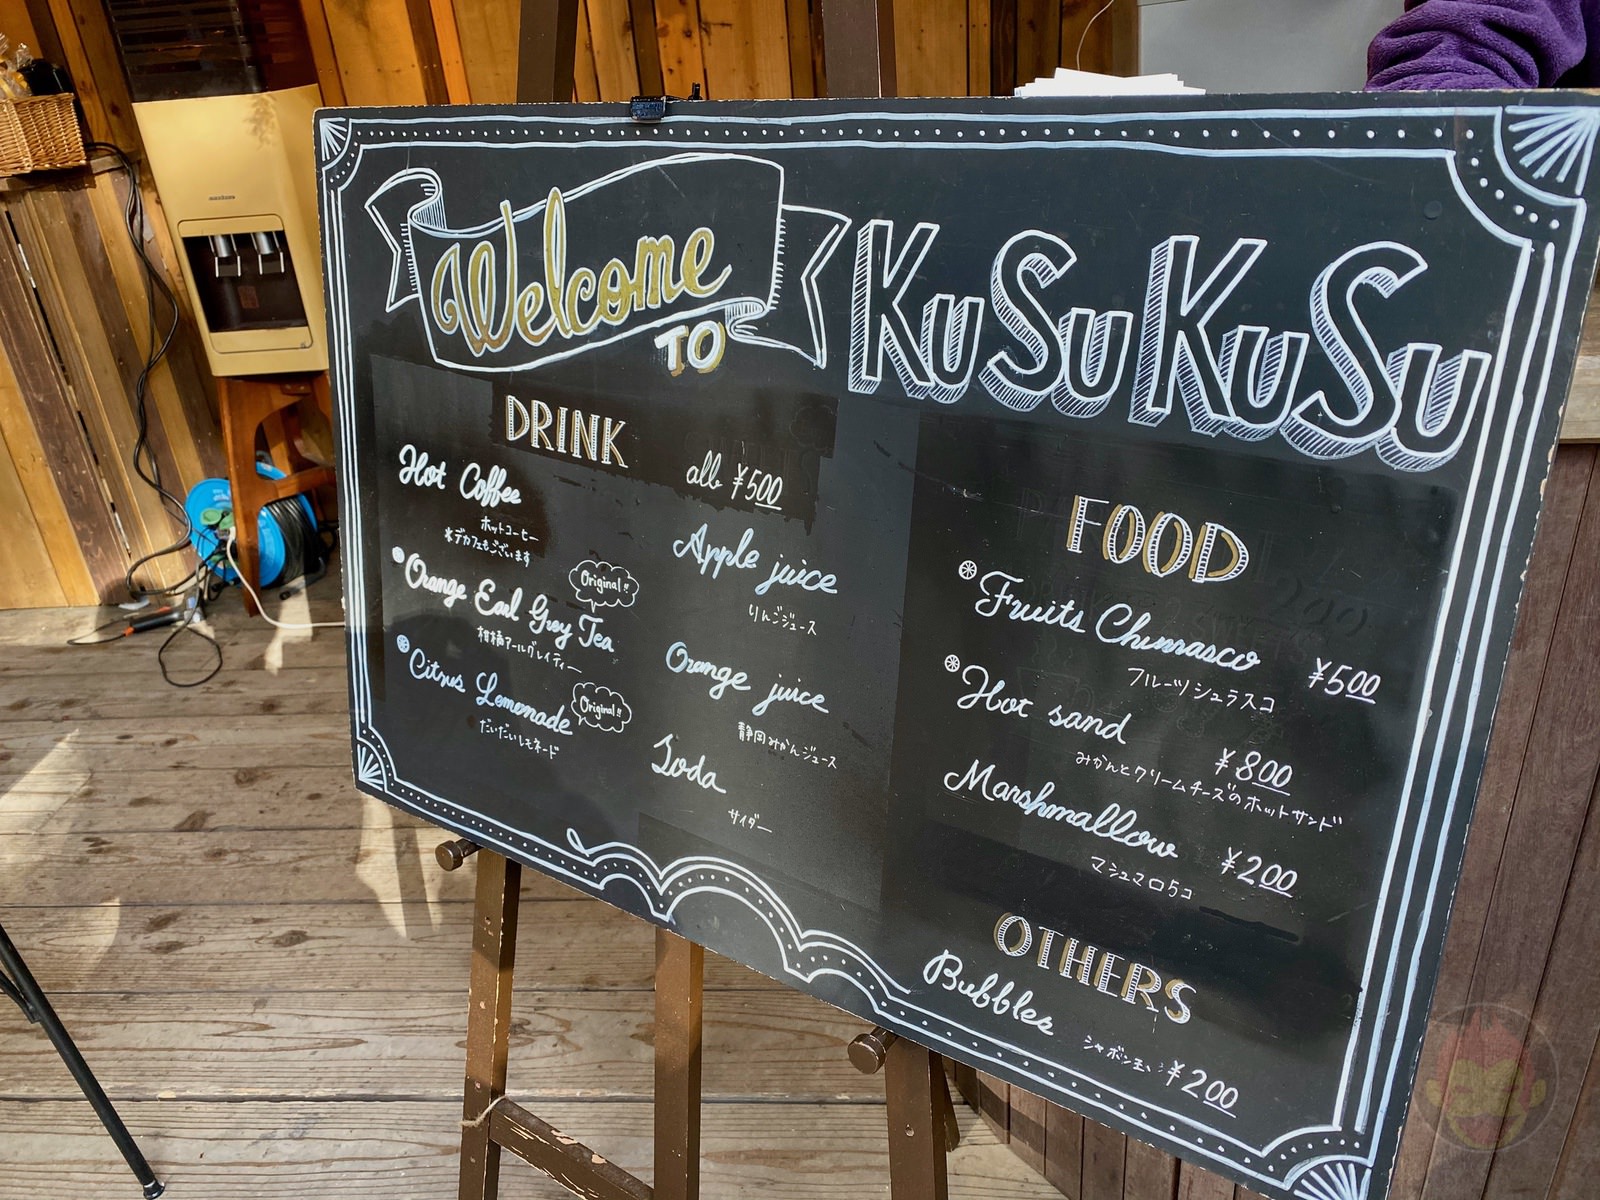 Welcome
TO
KUSUKUSU
DRINK
all ¥500
Hot Coffee
ホットコーヒー
*デカフェもございます
Orange Earl Grey Tea
Original!!
柑橘アールグレイティー
Citrus Lemonade
Original!!
だいだいレモネード
Apple juice
りんごジュース
Orange juice
静岡みかんジュース
Soda
サイダー
FOOD
Fruits Churrasco
フルーツシュラスコ
¥500
Hot sand
¥800
みかんとクリームチーズのホットサンド
Marshmallow
¥200
マシュマロ5コ
OTHERS
Bubbles
シャボン玉
¥200